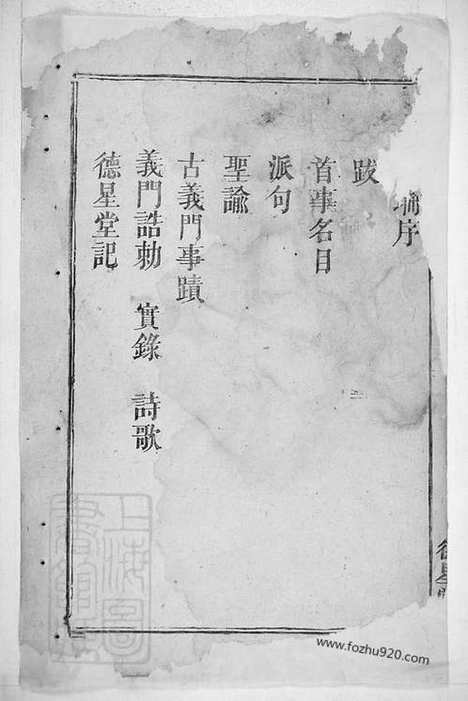 序
跋
首事名目
派句
聖諭
古義門事蹟
義門誥勅 實錄 詩歌
德星堂記
德星
上海圖書館藏
www.fozhu920.com